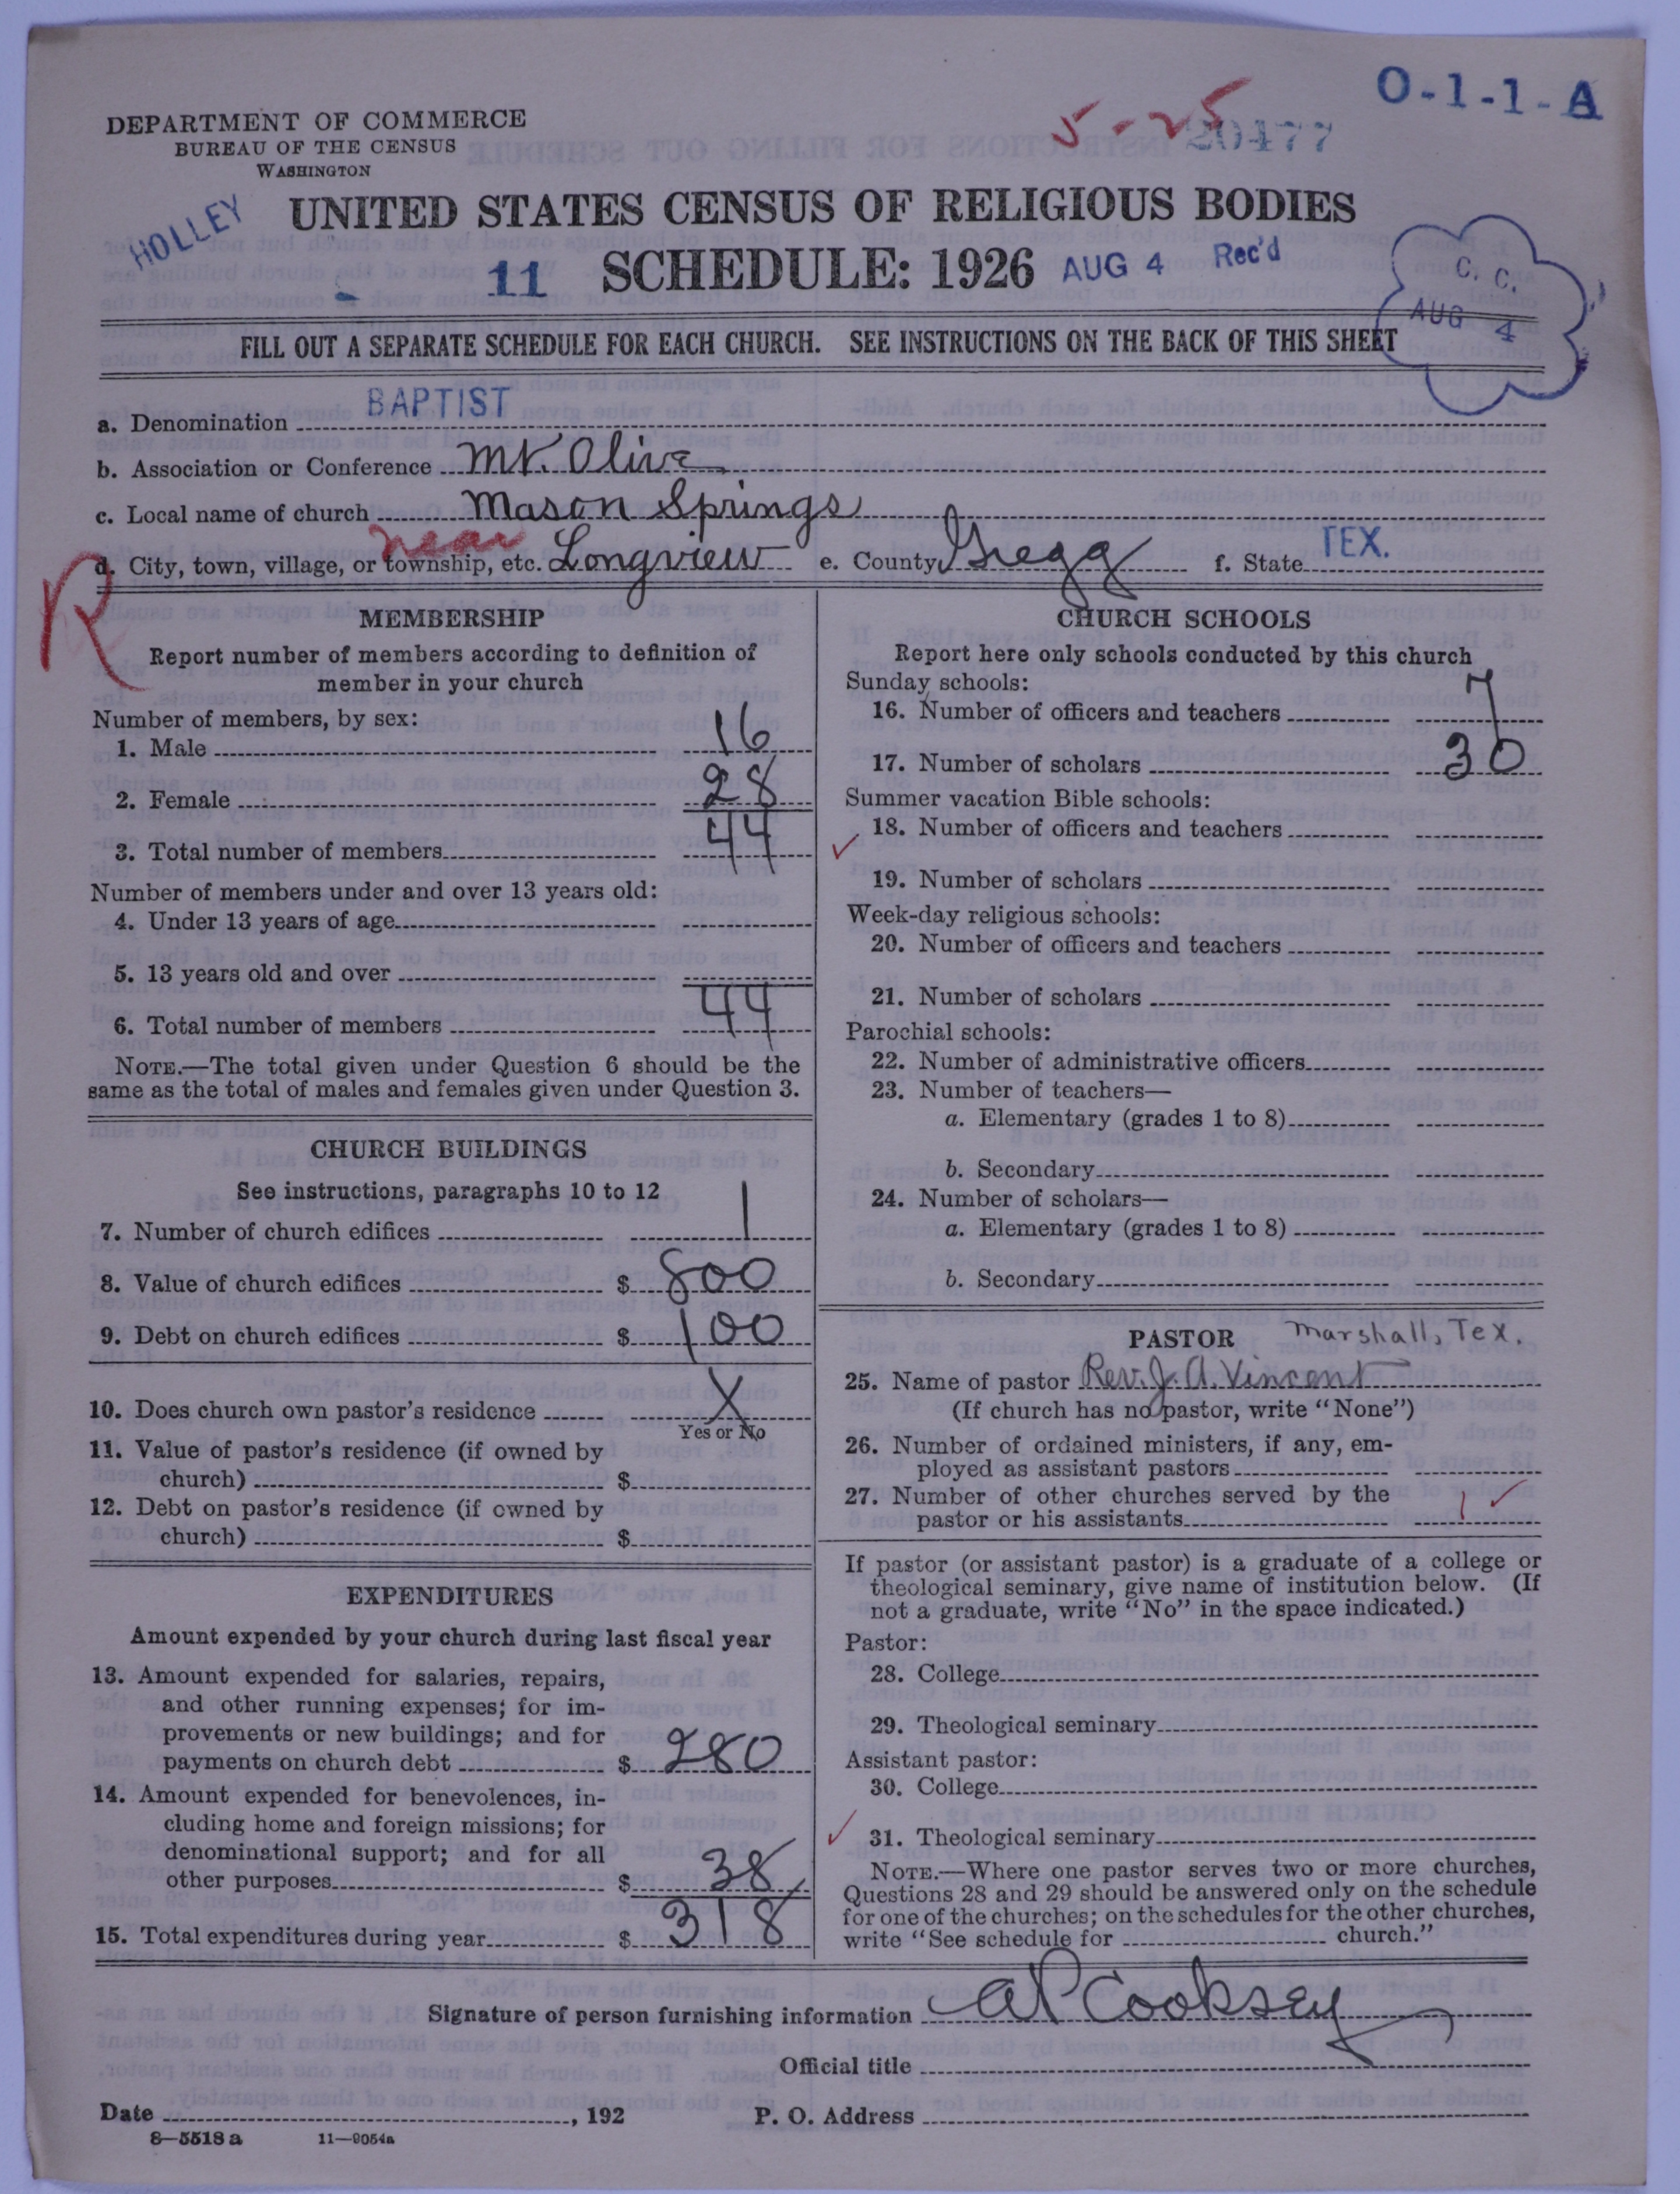 O-1-1-A
5-25
20477
DEPARTMENT OF COMMERCE
BUREAU OF THE CENSUS
WASHINGTON
HOLLEY
UNITED STATES CENSUS OF RELIGIOUS BODIES
11 SCHEDULE: 1926 AUG 4 Rec'd
C. C.
AUG 4
FILL OUT A SEPARATE SCHEDULE FOR EACH CHURCH. SEE INSTRUCTIONS ON THE BACK OF THIS SHEET
a. Denomination BAPTIST
b. Association or Conference Mt. Olive
c. Local name of church Mason Springs
R
d. City, town, village, or township, etc. near Longview e. County Gregg f. State TEX.
MEMBERSHIP
Report number of members according to definition of
member in your church
Number of members, by sex:
1. Male 16
2. Female 28
3. Total number of members 44
Number of members under and over 13 years old:
4. Under 13 years of age
5. 13 years old and over
6. Total number of members 44
NOTE.—The total given under Question 6 should be the
same as the total of males and females given under Question 3.
CHURCH BUILDINGS
See instructions, paragraphs 10 to 12
7. Number of church edifices 1
8. Value of church edifices $ 800
9. Debt on church edifices $ 100
10. Does church own pastor's residence X
Yes or No
11. Value of pastor's residence (if owned by
church) $
12. Debt on pastor's residence (if owned by
church) $
EXPENDITURES
Amount expended by your church during last fiscal year
13. Amount expended for salaries, repairs,
and other running expenses; for im-
provements or new buildings; and for
payments on church debt $ 280
14. Amount expended for benevolences, in-
cluding home and foreign missions; for
denominational support; and for all
other purposes $ 38
15. Total expenditures during year $ 318
CHURCH SCHOOLS
Report here only schools conducted by this church
Sunday schools:
16. Number of officers and teachers 7
17. Number of scholars 30
Summer vacation Bible schools:
18. Number of officers and teachers
19. Number of scholars
Week-day religious schools:
20. Number of officers and teachers
21. Number of scholars
Parochial schools:
22. Number of administrative officers
23. Number of teachers—
a. Elementary (grades 1 to 8)
b. Secondary
24. Number of scholars—
a. Elementary (grades 1 to 8)
b. Secondary
PASTOR Marshall, Tex.
25. Name of pastor Rev. J. A. Vincent
(If church has no pastor, write "None")
26. Number of ordained ministers, if any, em-
ployed as assistant pastors
27. Number of other churches served by the
pastor or his assistants 1
If pastor (or assistant pastor) is a graduate of a college or
theological seminary, give name of institution below. (If
not a graduate, write "No" in the space indicated.)
Pastor:
28. College
29. Theological seminary
Assistant pastor:
30. College
31. Theological seminary
NOTE.—Where one pastor serves two or more churches,
Questions 28 and 29 should be answered only on the schedule
for one of the churches; on the schedules for the other churches,
write "See schedule for church."
Signature of person furnishing information A P Cooksey
Official title
Date , 192 P. O. Address
8—5518 a 11—9054a